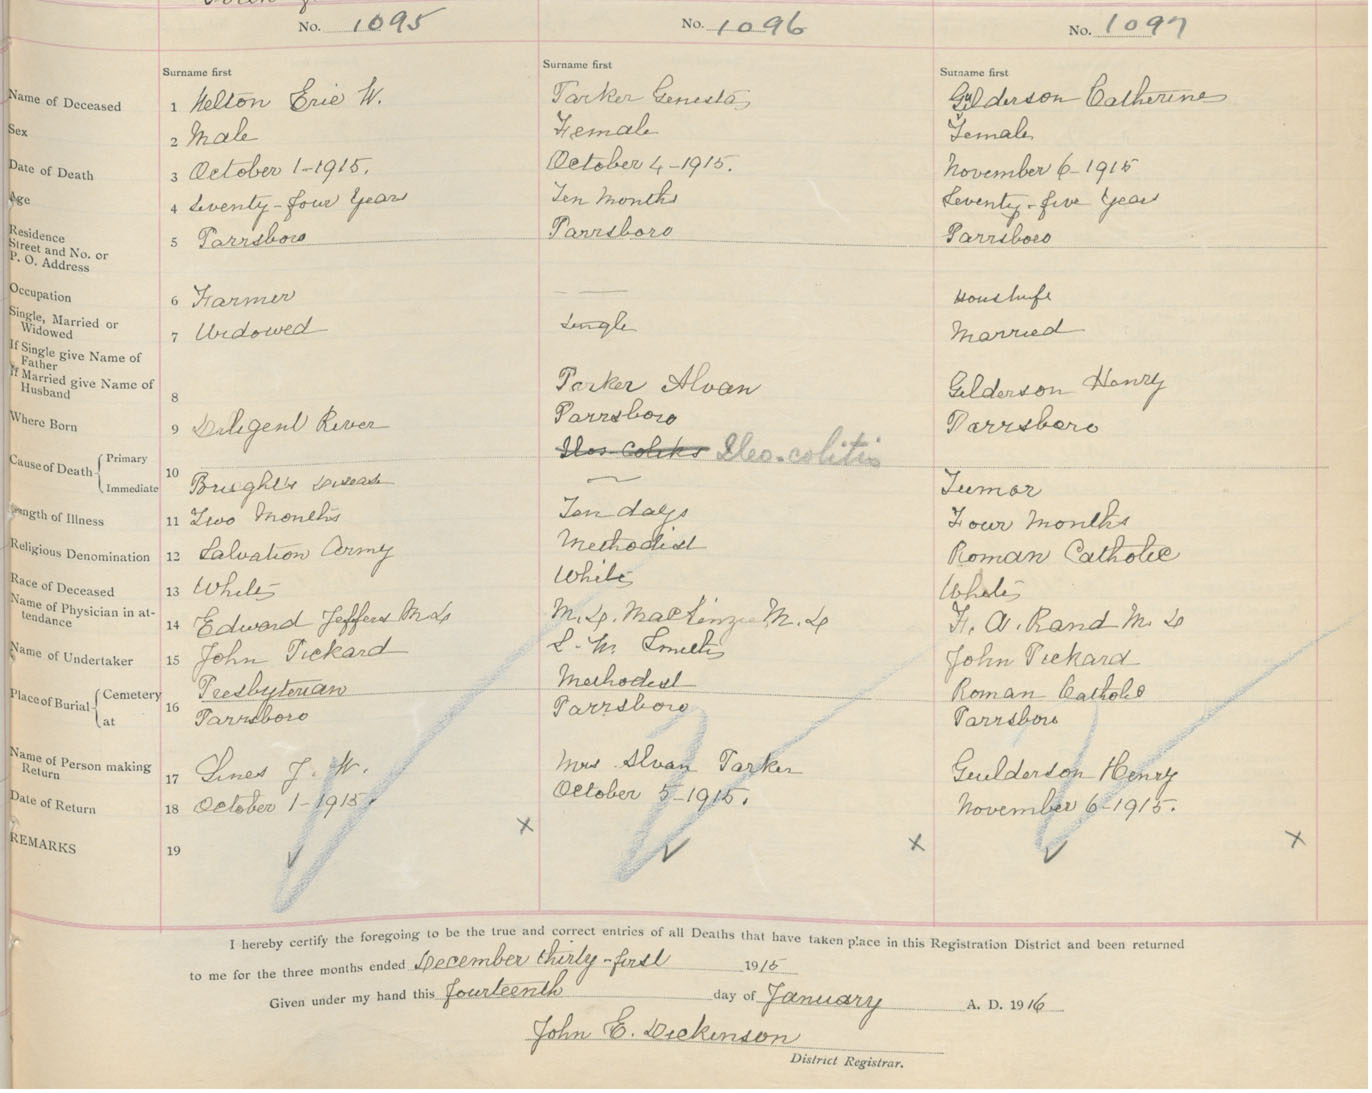 No. 1095 No. 1096 No. 1097
Surname first Surname first Surname first
Name of Deceased 1 Welton Eric W. Parker Genesta Gilderson Catherine
Sex 2 Male Female Female
Date of Death 3 October 1-1915. October 4-1915. November 6-1915
Age 4 Seventy-four Years Ten Months Seventy-five Years
Residence
Street and No. or
P. O. Address 5 Parrsboro Parrsboro Parrsboro
Occupation 6 Farmer — — Houshife
Single, Married or
Widowed 7 Widowed Single Married
If Single give Name of
Father
If Married give Name of
Husband 8 Parker Alvan Gilderson Henry
Where Born 9 Diligent River Parrsboro Parrsboro
Cause of Death Primary 10 Ileo-colitis
Immediate Bright's Disease — Tumor
Length of Illness 11 Two Months Ten days Four Months
Religious Denomination 12 Salvation Army Methodist Roman Catholic
Race of Deceased 13 White White White
Name of Physician in at-
tendance 14 Edward Jeffers M.D. M. D. MacKenzie M. D F. A. Rand M. D
Name of Undertaker 15 John Pickard S. M. Smith John Pickard
Place of Burial Cemetery 16 Presbyterian Methodist Roman Catholic
at Parrsboro Parrsboro Parrsboro
Name of Person making
Return 17 Lines J. W. Mrs Alvan Parker Guilderson Henry
Date of Return 18 October 1-1915. October 5-1915. November 6-1915.
REMARKS 19 ✓ x ✓ x ✓ x
I hereby certify the foregoing to be the true and correct entries of all Deaths that have taken place in this Registration District and been returned
to me for the three months ended December thirty-first 1915
Given under my hand this fourteenth day of January A. D. 1916
John E. Dickinson
District Registrar.